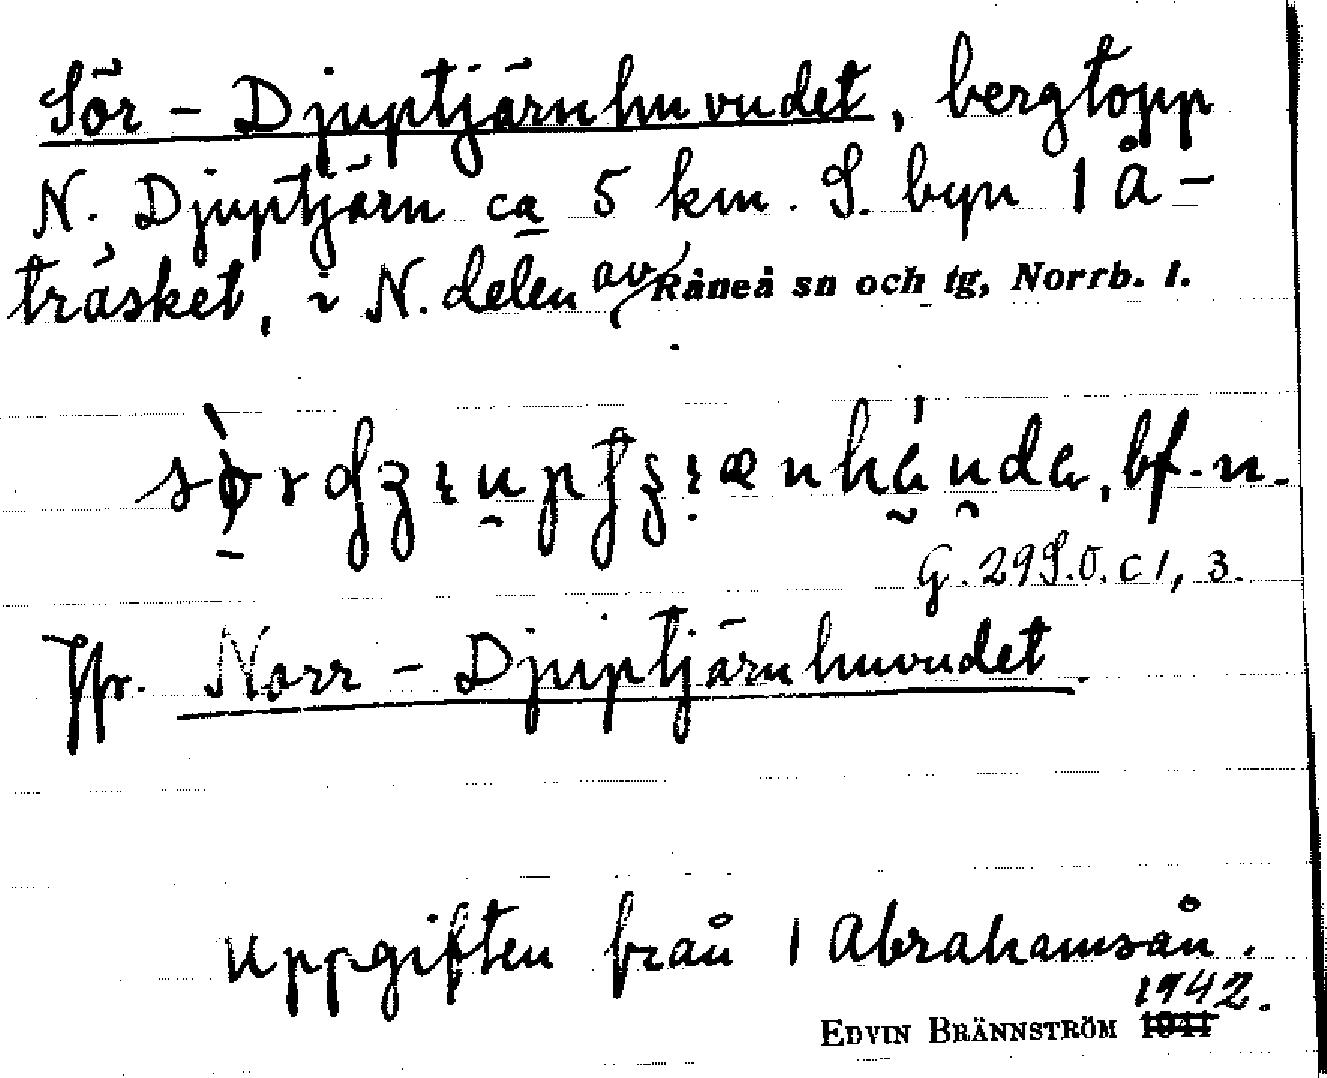 Sör-Djuptjärnhuvudet, bergtopp
N. Djuptjärn ca 5 km. S. byn 1 Å-
träsket, i N. delen av Råneå sn och tg, Norrb. l.
bf. n.
G. 29 S.O. c 1, 3.
Jfr. Norr-Djuptjärnhuvudet.
Uppgiften från 1 Abrahamsån.
1942.
EDVIN BRÄNNSTRÖM 1941